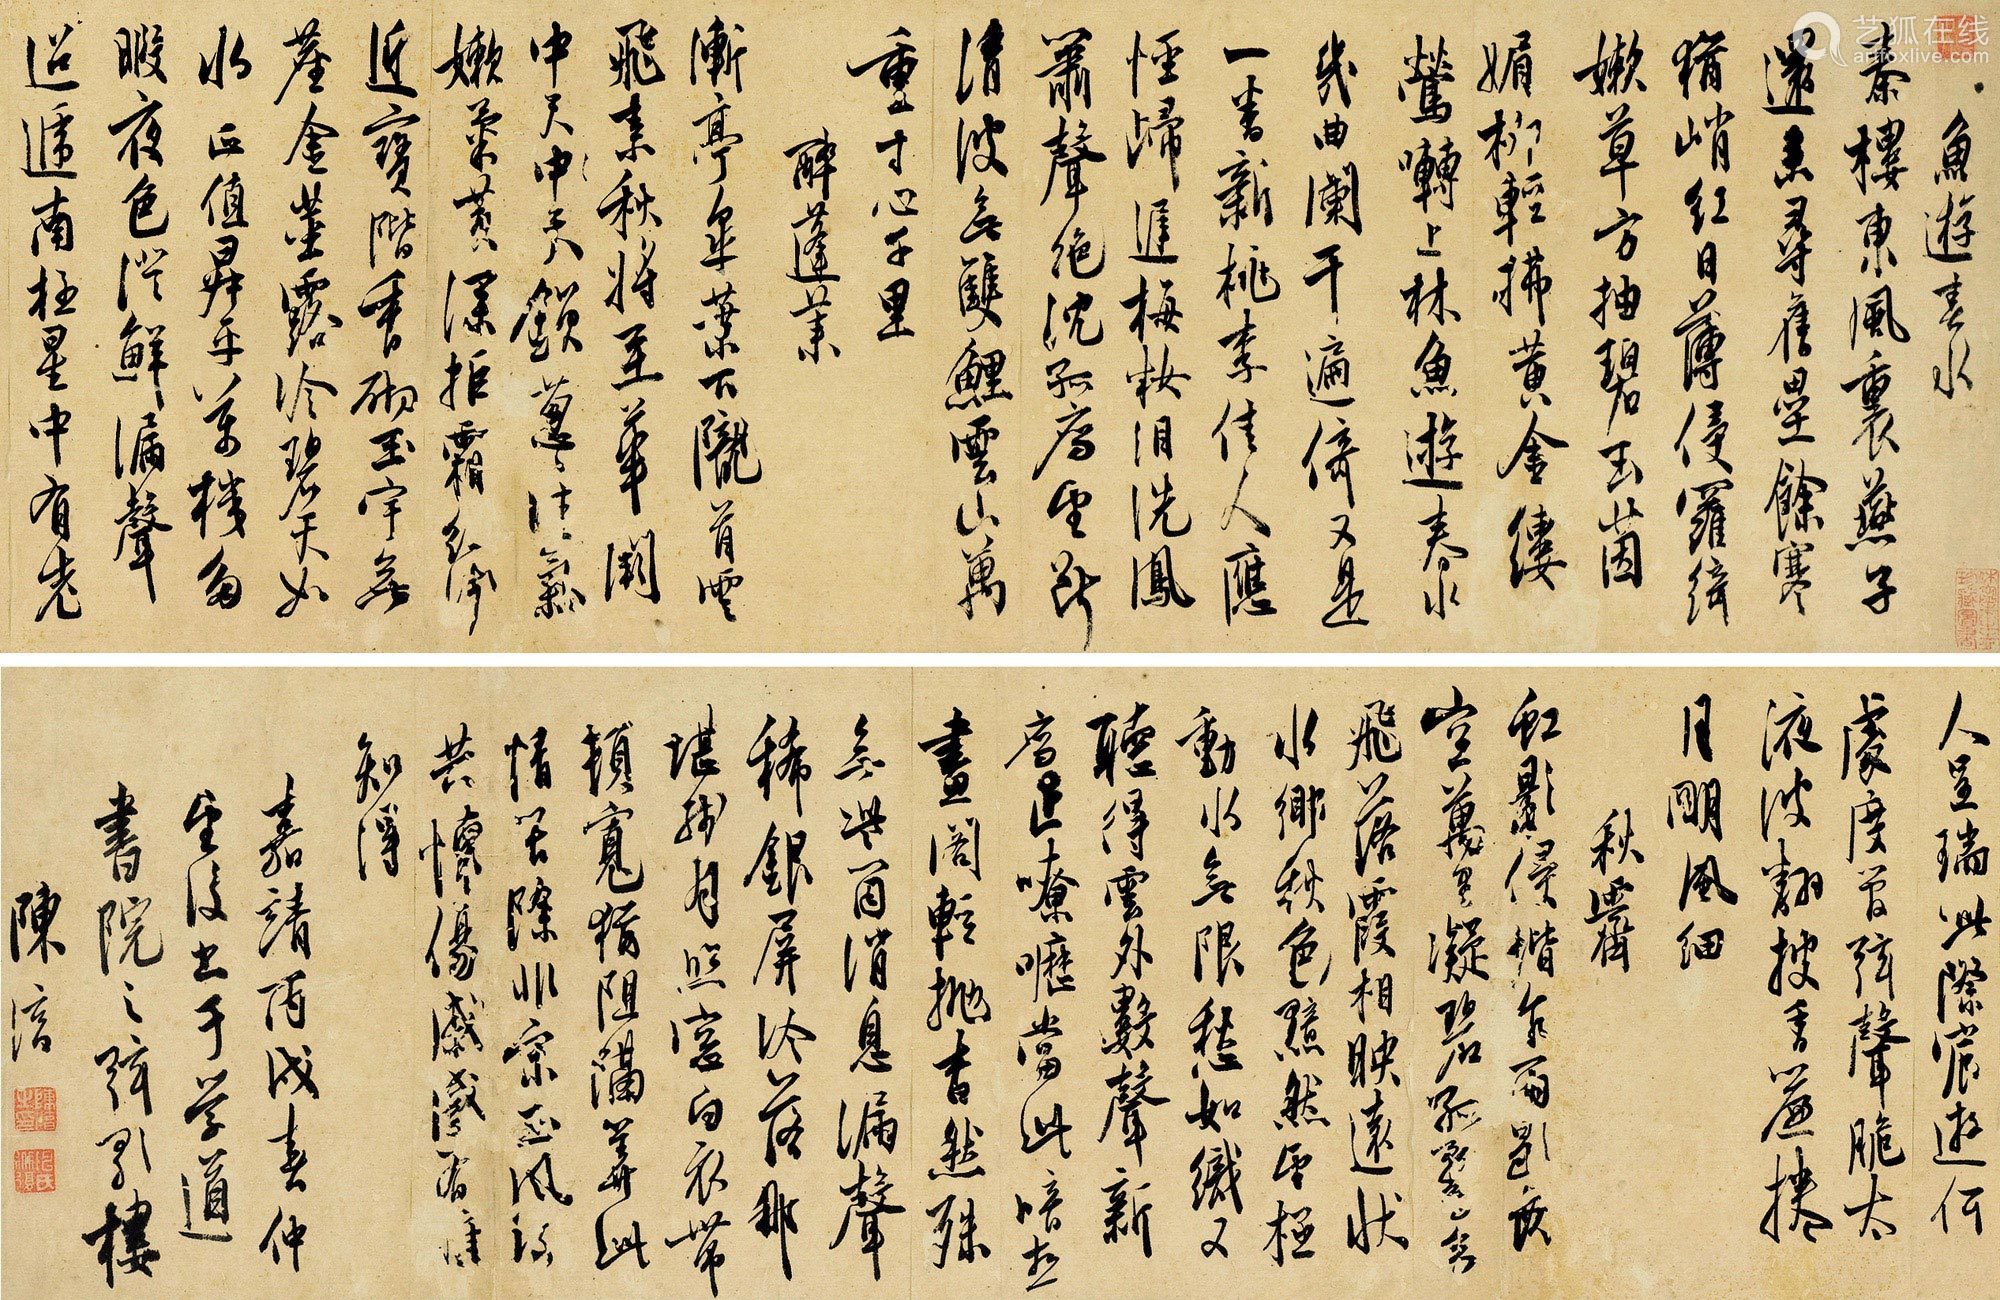 魚遊春水
秦樓東風裏燕子
還來尋舊壘餘寒
猶峭紅日薄侵羅綺
嫩草方抽碧玉茵
媚柳輕拂黃金縷
鶯囀上林魚遊春水
幾曲闌干遍倚又是
一番新桃李佳人應
怪歸遲梅妝泪洗鳳
簫聲絕沈孤鴈望斷
清波無雙鯉雲山萬
重寸心千里
醉蓬萊
漸亭皋葉下隴首雲
飛素秋將至華闕
中天中天鎖蔥蔥佳氣
嫩菊黃深拒霜紅淺
近寶階香砌玉宇無
塵金莖露冷碧天如
水正值昇平萬機多
暇夜色澄鮮漏聲
迢遞南極星中有老
人呈瑞此際宸遊何
處度管弦聲脆太
液波翻披香簾捲
月明風細
秋霽
虹影侵階乍雨歇長
空萬里凝碧孤鶩高
飛落霞相映遠狀
水鄉秋色黯然望極
動水無限愁如織又
聽得雲外數聲新
鴈正嘹嚦當此暗想
畫閣輕拋杳然殊
無些箇消息漏聲
稀銀屏冷落那
堪殘月照窗白衣帶
頓寬猶阻隔算此
情苦除非宋玉風流
共懷傷感有誰
知得
嘉靖丙戌春仲
望後書于學道
書院之弦歌樓
陳淳
艺狐在线
artfoxlive.com